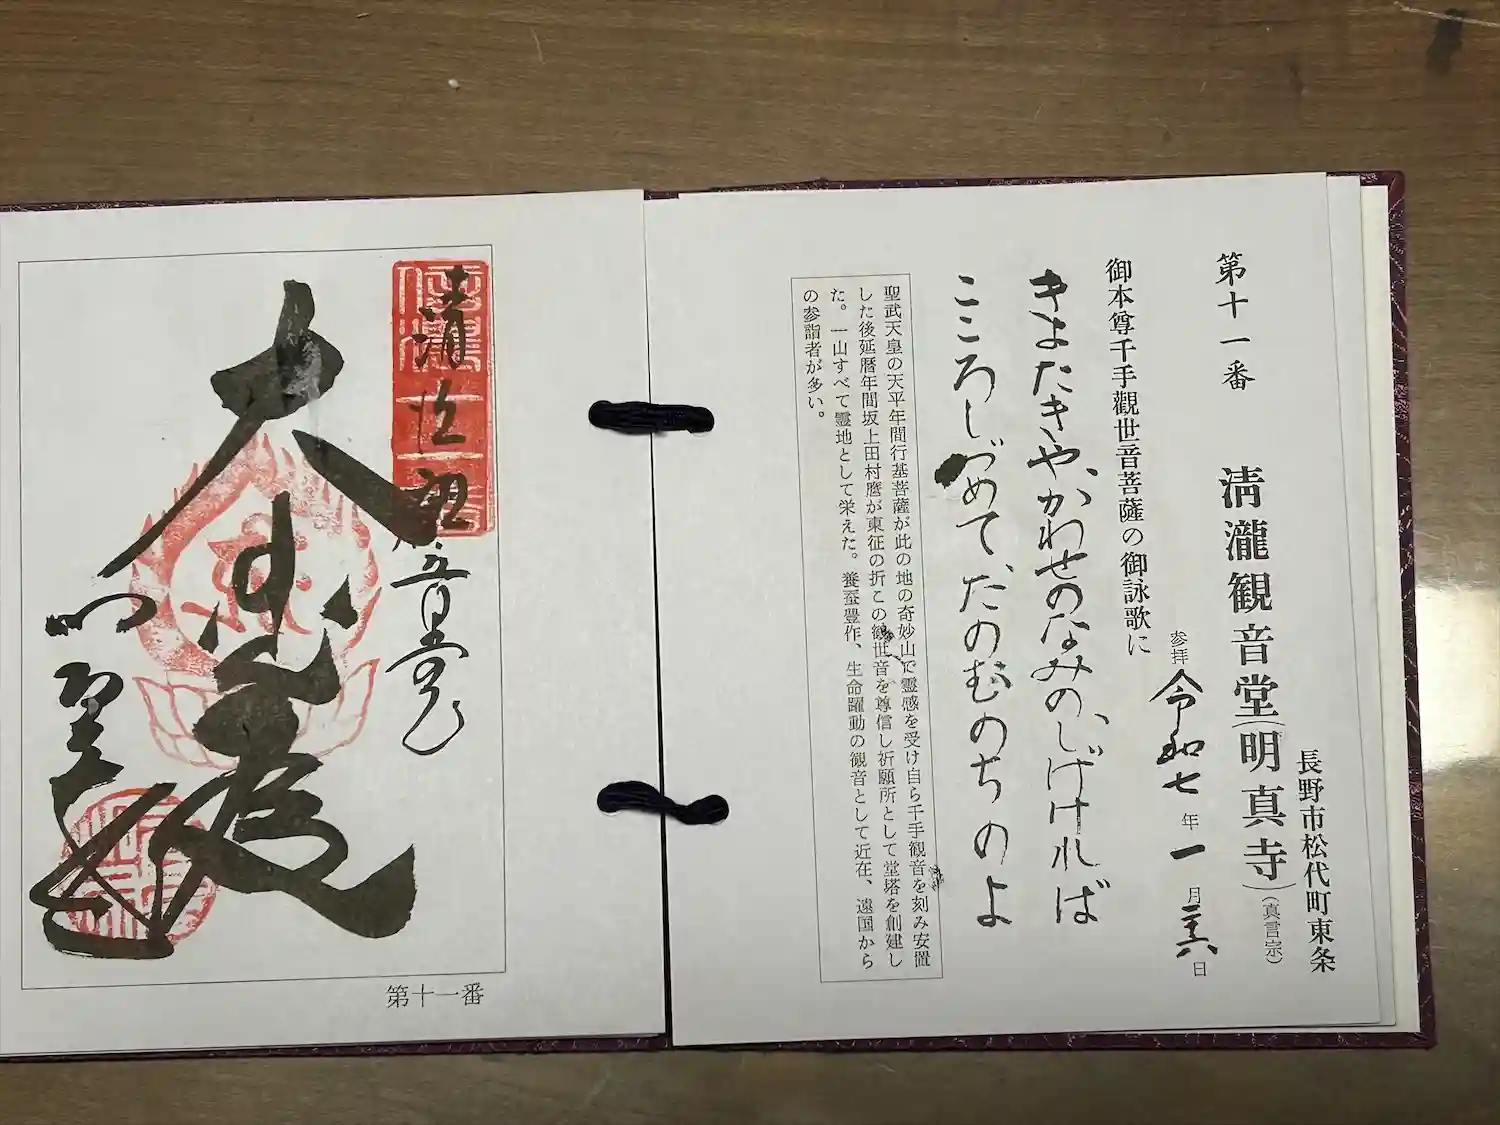 長野市松代町東条
第十一番　清瀧観音堂（明真寺）（真言宗）
参拝 令和七年一月二十六日
御本尊千手觀世音菩薩の御詠歌に
きよたきや、かわせのなみの、しげければ
こころしづめて、たのむのちのよ
聖武天皇の天平年間行基菩薩が此の地の奇妙山で霊感を受け自ら千手観音を刻み安置
した後延暦年間坂上田村麿が東征の折この観世音を尊信し祈願所として堂塔を創建し
た。一山すべて霊地として栄えた。養蚕豊作、生命躍動の観音として近在、遠国から
の参詣者が多い。
大悲
第十一番